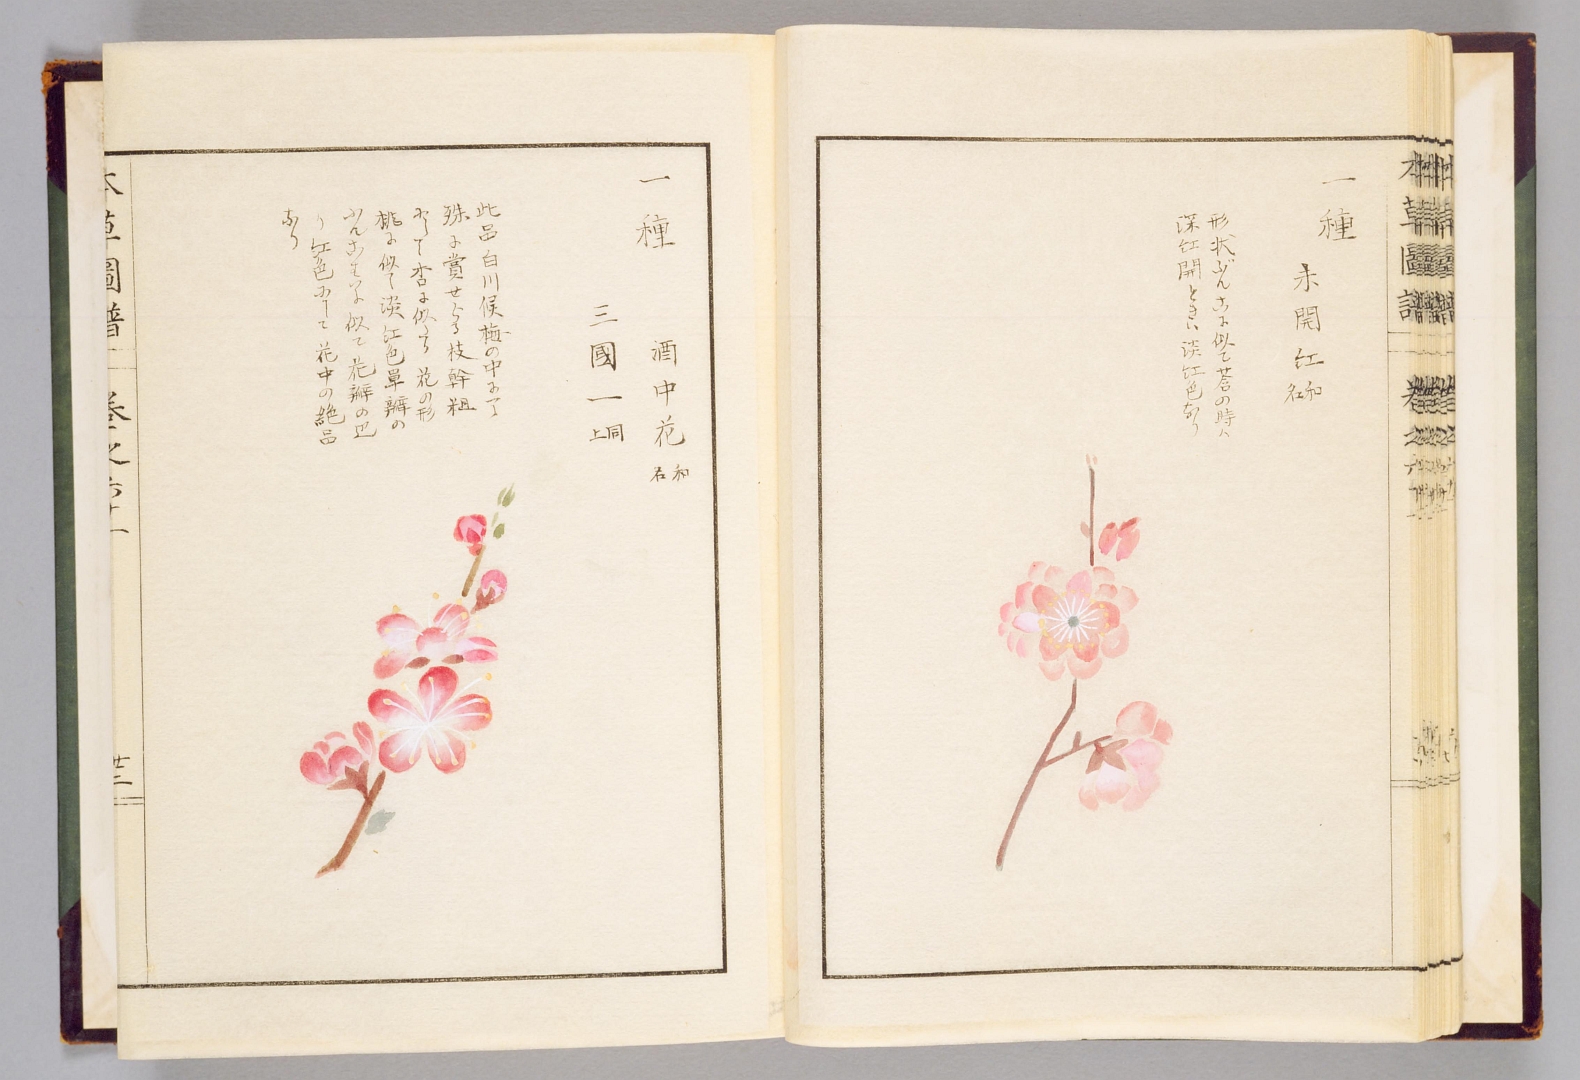 本草圖譜
一種
未開紅 和名
形状ぶんごに似て蒼の時ハ
深紅開ときハ淡紅色なり
一種
酒中花 和名
三國一 同上
此品白川侯梅の中にて
殊に賞せらる枝幹粗
にして杏に似たり花の形
桃に似て淡紅色單瓣の
ぶんごむめに似て花瓣の
り紅色にして花中の絶品
なり
本草圖譜
卷之六十一
廿二